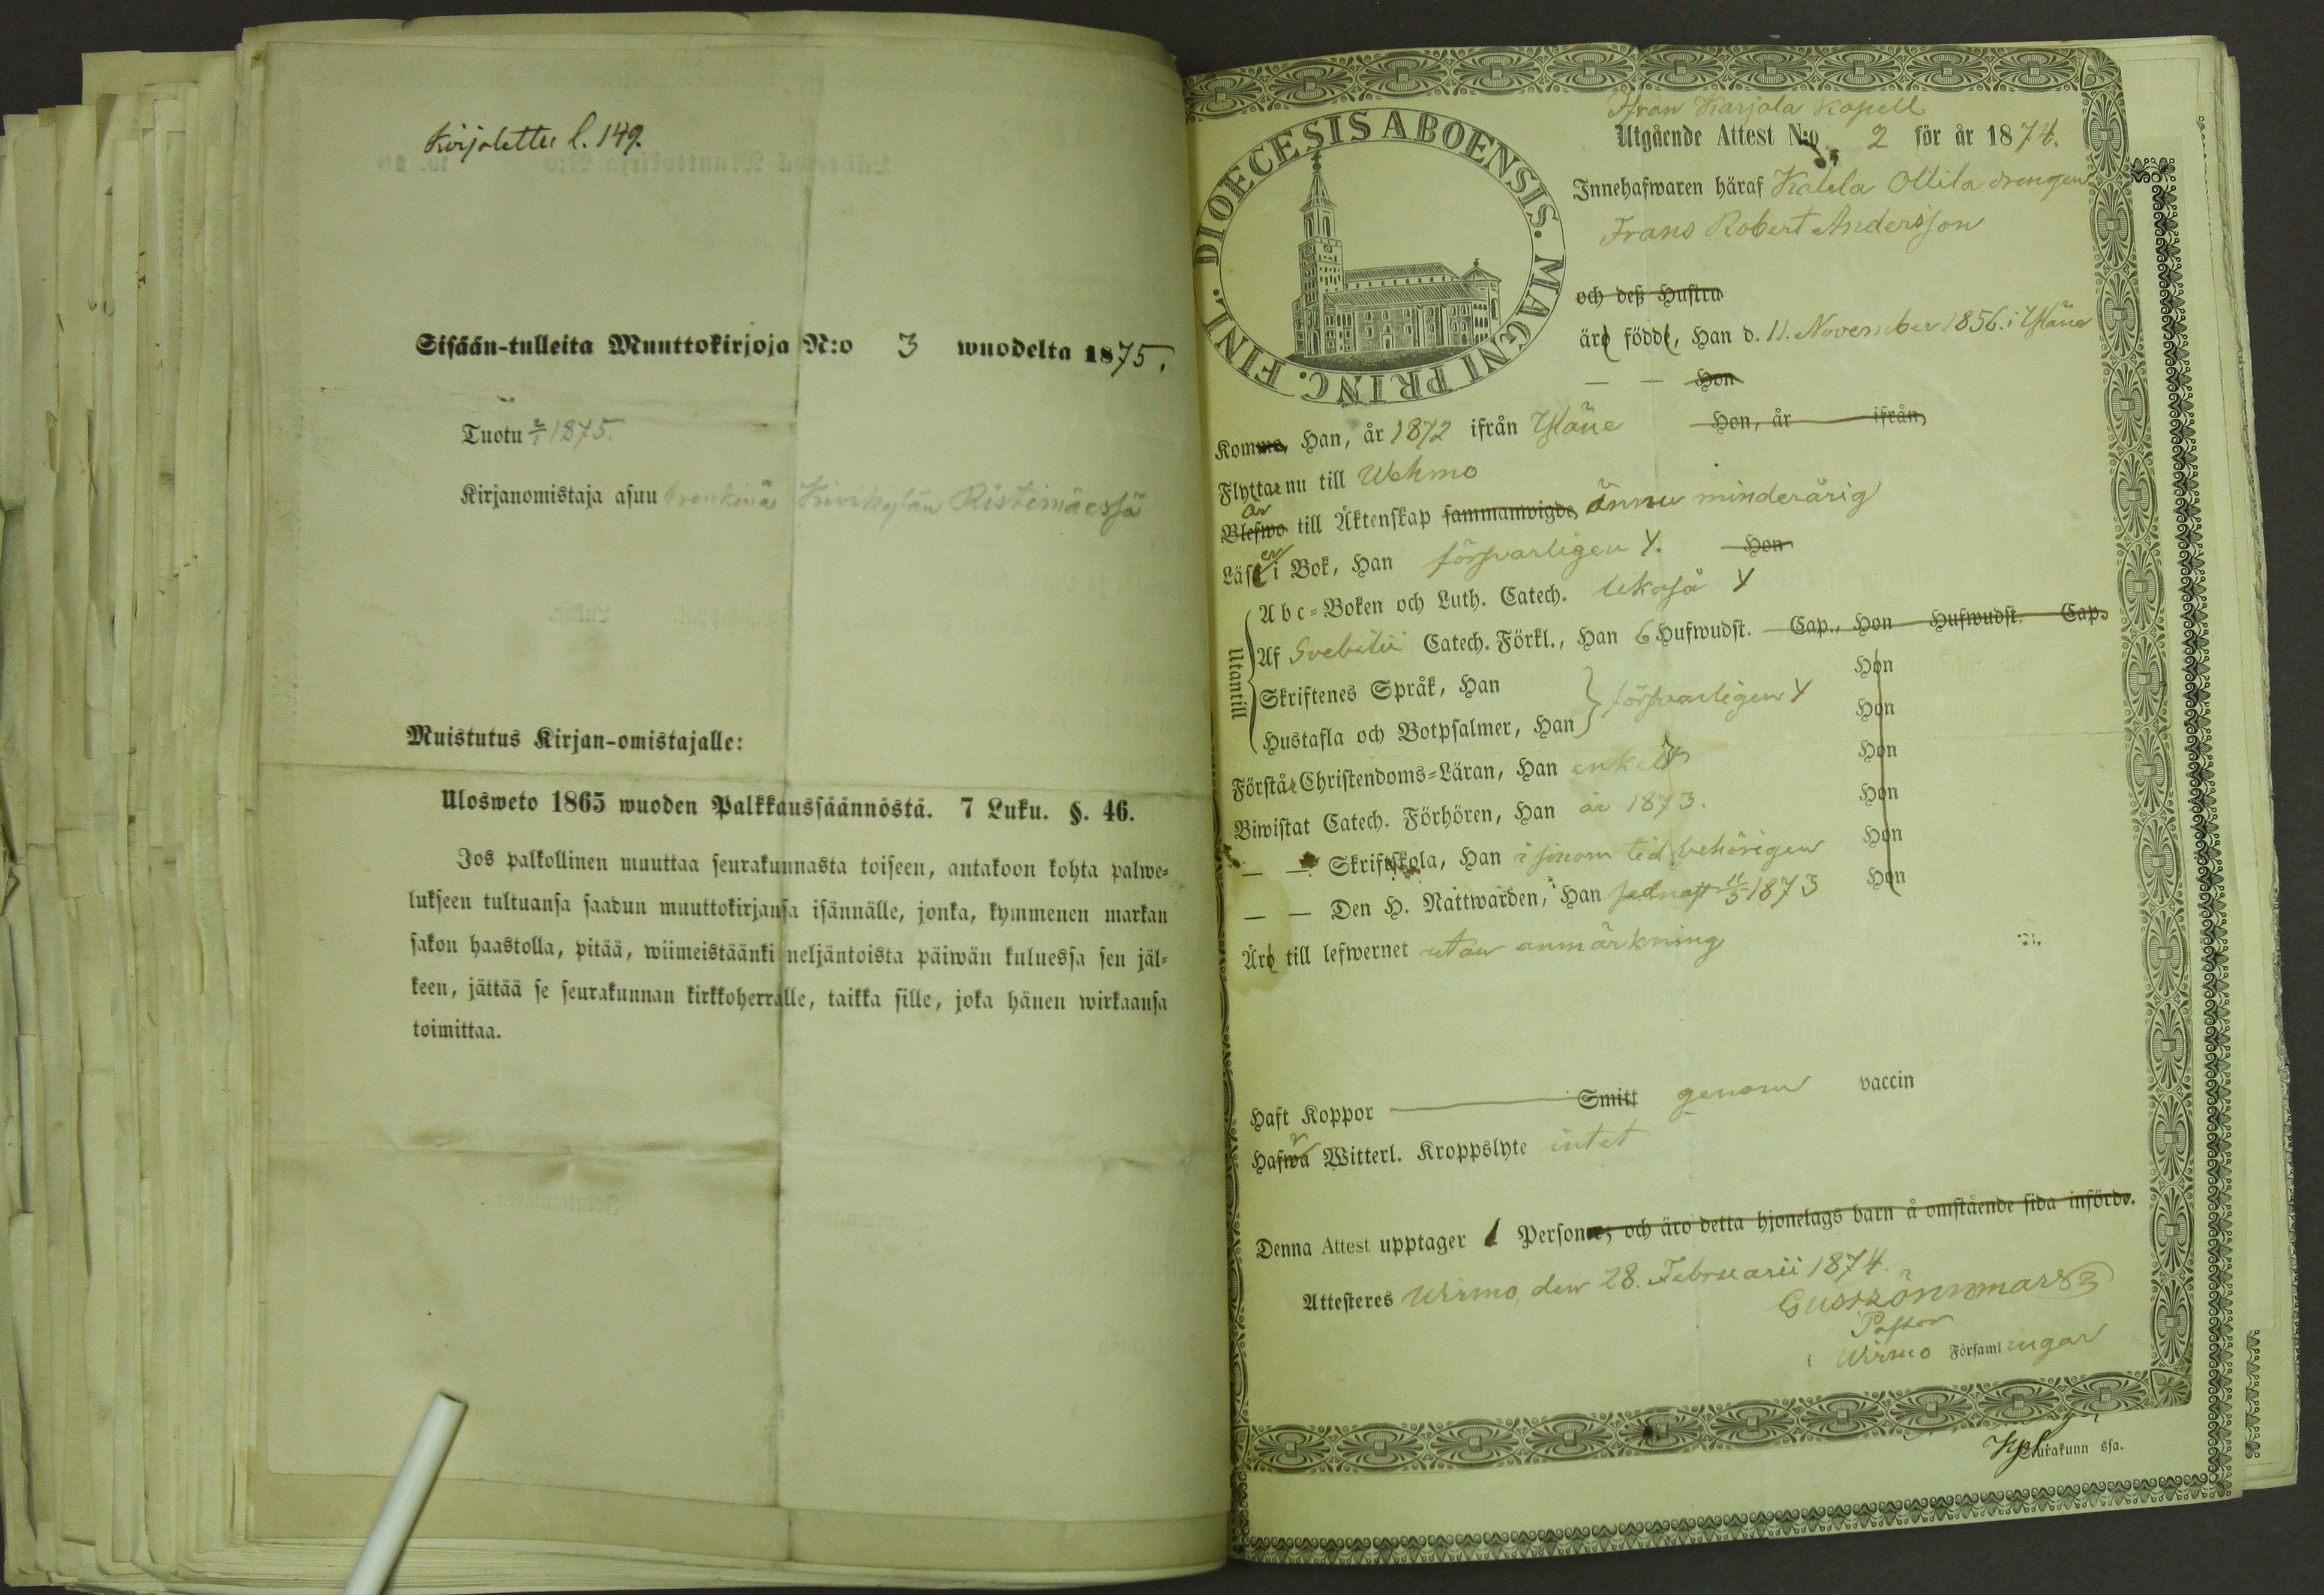 Kirjoitettu l. 149.
Sisään-tulleita Muuttokirjoja N:o 3 wuodelta 1875.
Tuotu 2/1 1875.
Kirjanomistaja asuu trenkinä Kivikylän Ristimäessä
Muistutus Kirjan-omistajalle:
Ulosweto 1865 wuoden Palkkaussäännöstä. 7 Luku. §. 46.
Jos palkollinen muuttaa seurakunnasta toiseen, antakoon kohta palwe-
lukseen tultuansa saadun muuttokirjansa isännälle, jonka, kymmenen markan
sakon haastolla, pitää, wiimeistäänki neljäntoista päiwän kuluessa sen jäl-
keen, jättää se seurakunnan kirkkoherralle, taikka sille, joka hänen wirkaansa
toimittaa.
DIOECESIS ABOENSIS. MAGNI PRINC. FINL.
Ifrån Karjala Kapell
Utgående Attest N:o 2 för år 1874.
Innehafwaren häraf Kalela Ollila drengen
Frans Robert Andersson
och deß Hustru
äro födde, Han d. 11. November 1856. i Yläne
— — Hon
Komma, Han, år 1872 ifrån Yläne Hon, år ifrån,
Flyttar nu till Wehmo
är
Blefwo till Äktenskap sammanwigde, ännu minderårig
Läser i Bok, Han försvarligen Y. Hon
Utantill
Abc-Boken och Luth. Catech. likaså Y
Af Svebilii Catech. Förkl., Han 6 Hufwudst. Cap., Hon Hufwudst. Cap.
Skriftenes Språk, Han Hon
försvarligen Y
Hustafla och Botpsalmer, Han Hon
Förstår Christendoms-Läran, Han enkelt Hon
Biwistat Catech. Förhören, Han år 1873. Hon
— — Skriftskola, Han i sinom tid behörigen Hon
— — Den H. Nattwarden, Han sednast 11/5 1873 Hon
Äro till lefwernet utan anmärkning
Haft Koppor Smitt genom vaccin
Hafwa Witterl. Kroppslyte intet
Denna Attest upptager 1 Personer, och äro detta hjonelags barn å omstående sida införde.
Attesteres Wirmo, den 28. Februarii 1874.
Pastor
i Wirmo Församlingar
Kpl.
Seurakunn ssa.